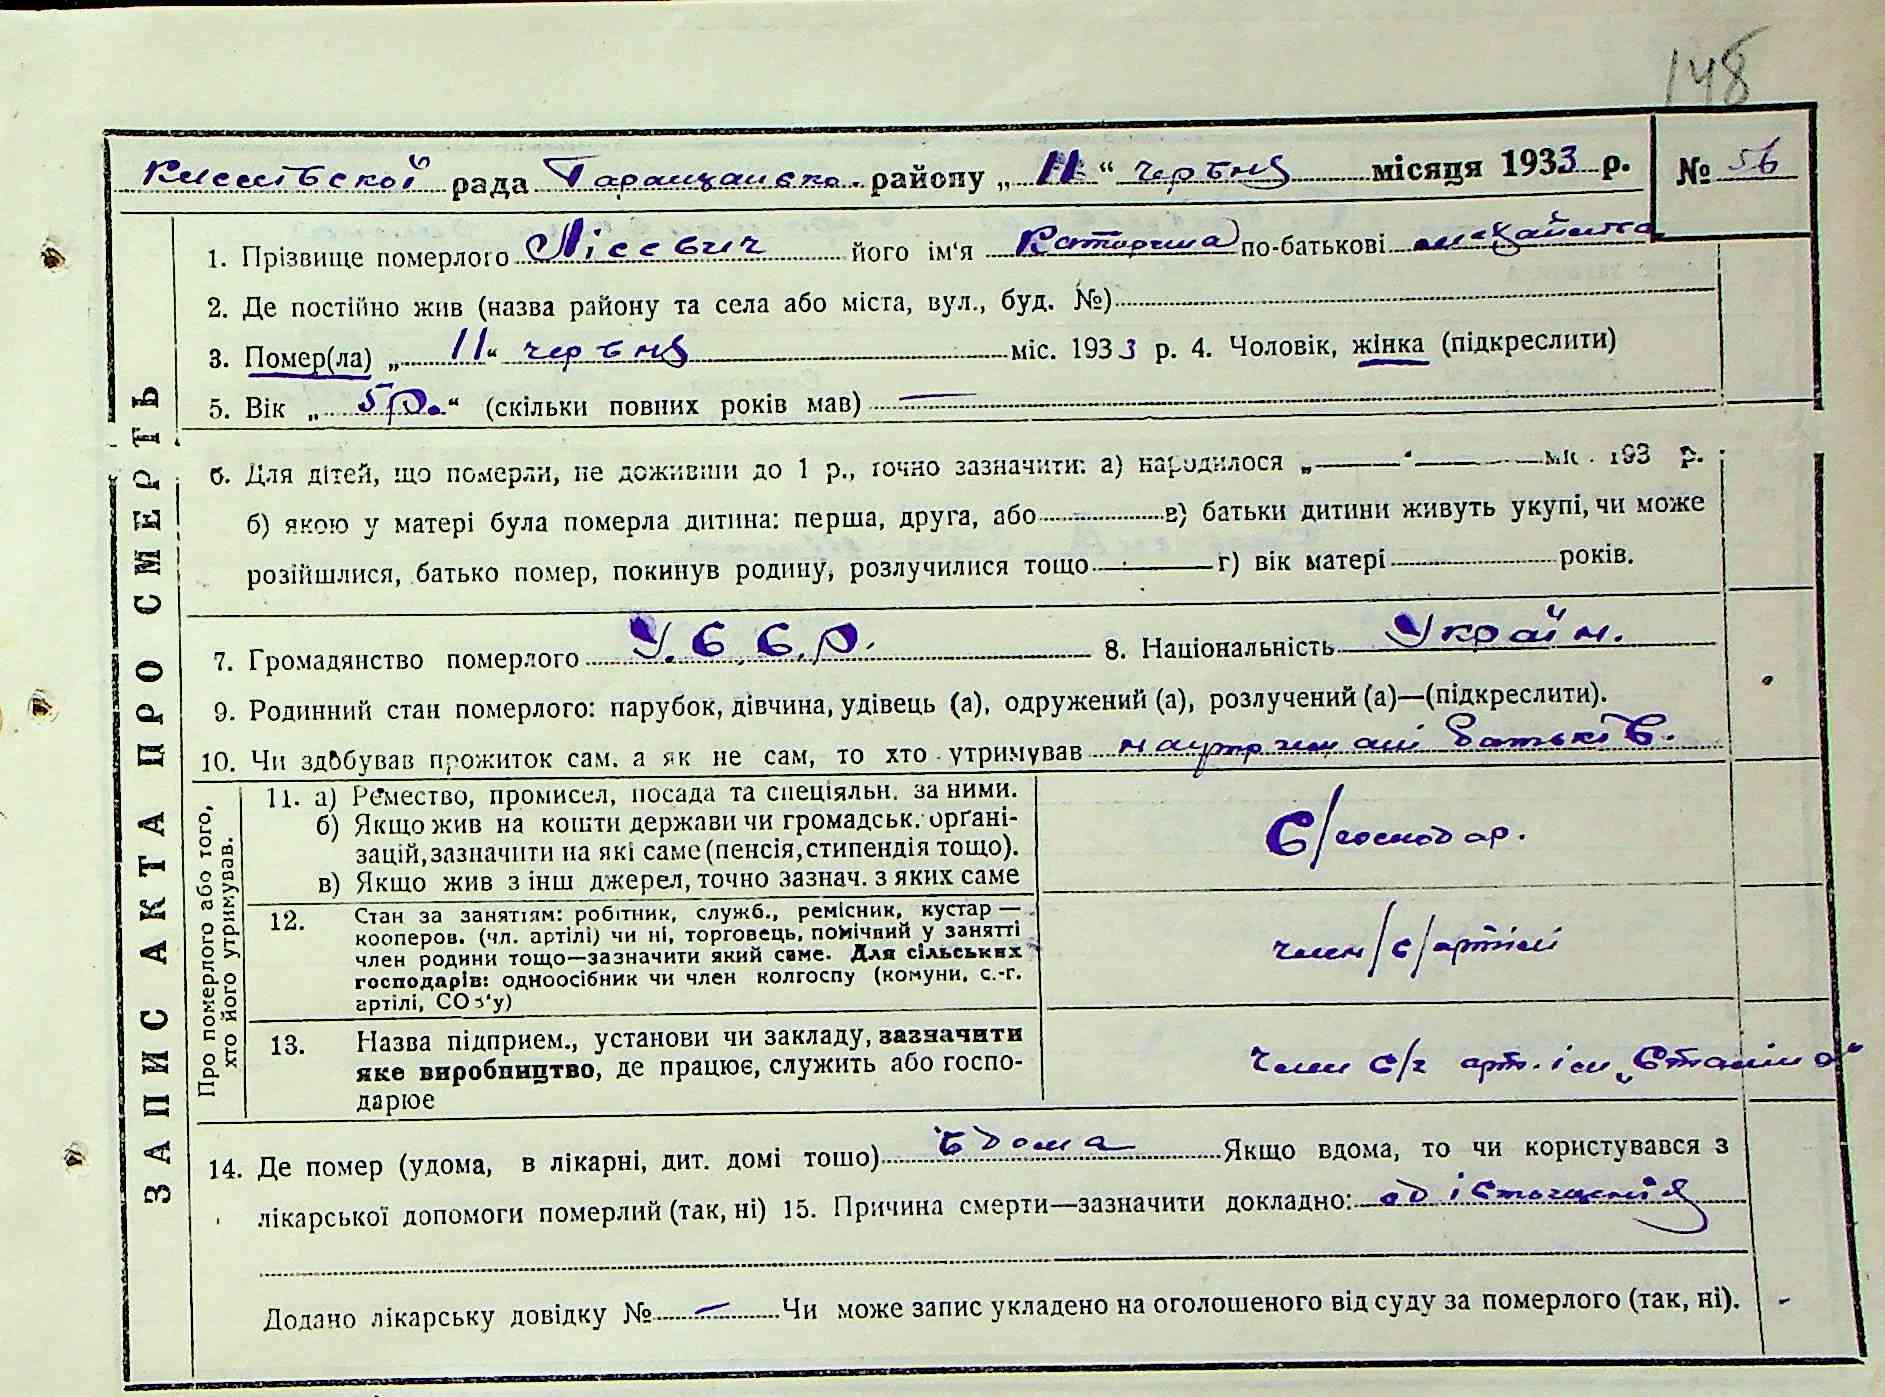 148
рада Таращансько. району „ 11 “ червня місяця 1933 р. № 56
ЗАПИС АКТА ПРО СМЕРТЬ
1. Прізвище померлого Лісевич його ім'я Катерина по-батькові
2. Де постійно жив (назва району та села або міста, вул., буд. №)
3. Помер(ла) „ 11 “ червня міс. 1933 р. 4. Чоловік, жінка (підкреслити)
5. Вік „ 5 р. “ (скільки повних років мав) —
6. Для дітей, що померли, не доживши до 1 р., точно зазначити: а) народилося „ — “ — міс. 193 р.
б) якою у матері була померла дитина: перша, друга, або в) батьки дитини живуть укупі, чи може
розійшлися, батько помер, покинув родину, розлучилися тощо г) вік матері років.
7. Громадянство померлого У.С.С.Р. 8. Національність Україн.
9. Родинний стан померлого: парубок, дівчина, удівець (а), одружений (а), розлучений (а)—(підкреслити).
10. Чи здобував прожиток сам, а як не сам, то хто утримував на утриманні батьків.
Про померлого або того,
хто його утримував.
11. а) Ремество, промисел, посада та спеціяльн. за ними.
б) Якщо жив на кошти держави чи громадськ. орґані-
зацій, зазначити на які саме (пенсія, стипендія тощо).
в) Якщо жив з інш джерел, точно зазнач. з яких саме
С/господар.
12. Стан за заняттям: робітник, служб., ремісник, кустар —
кооперов. (чл. артілі) чи ні, торговець, помічний у занятті
член родини тощо—зазначити який саме. Для сільських
господарів: одноосібник чи член колгоспу (комуни, с.-г.
артілі, СОЗ'у)
член/с/артілі
13. Назва підприєм., установи чи закладу, зазначити
яке виробництво, де працює, служить або госпо-
дарює
Член с/г арт. ім „Сталіна“
14. Де помер (удома, в лікарні, дит. домі тощо) вдома Якщо вдома, то чи користувався з
лікарської допомоги померлий (так, ні) 15. Причина смерти—зазначити докладно: од істощенія
Додано лікарську довідку № — Чи може запис укладено на оголошеного від суду за померлого (так, ні). -